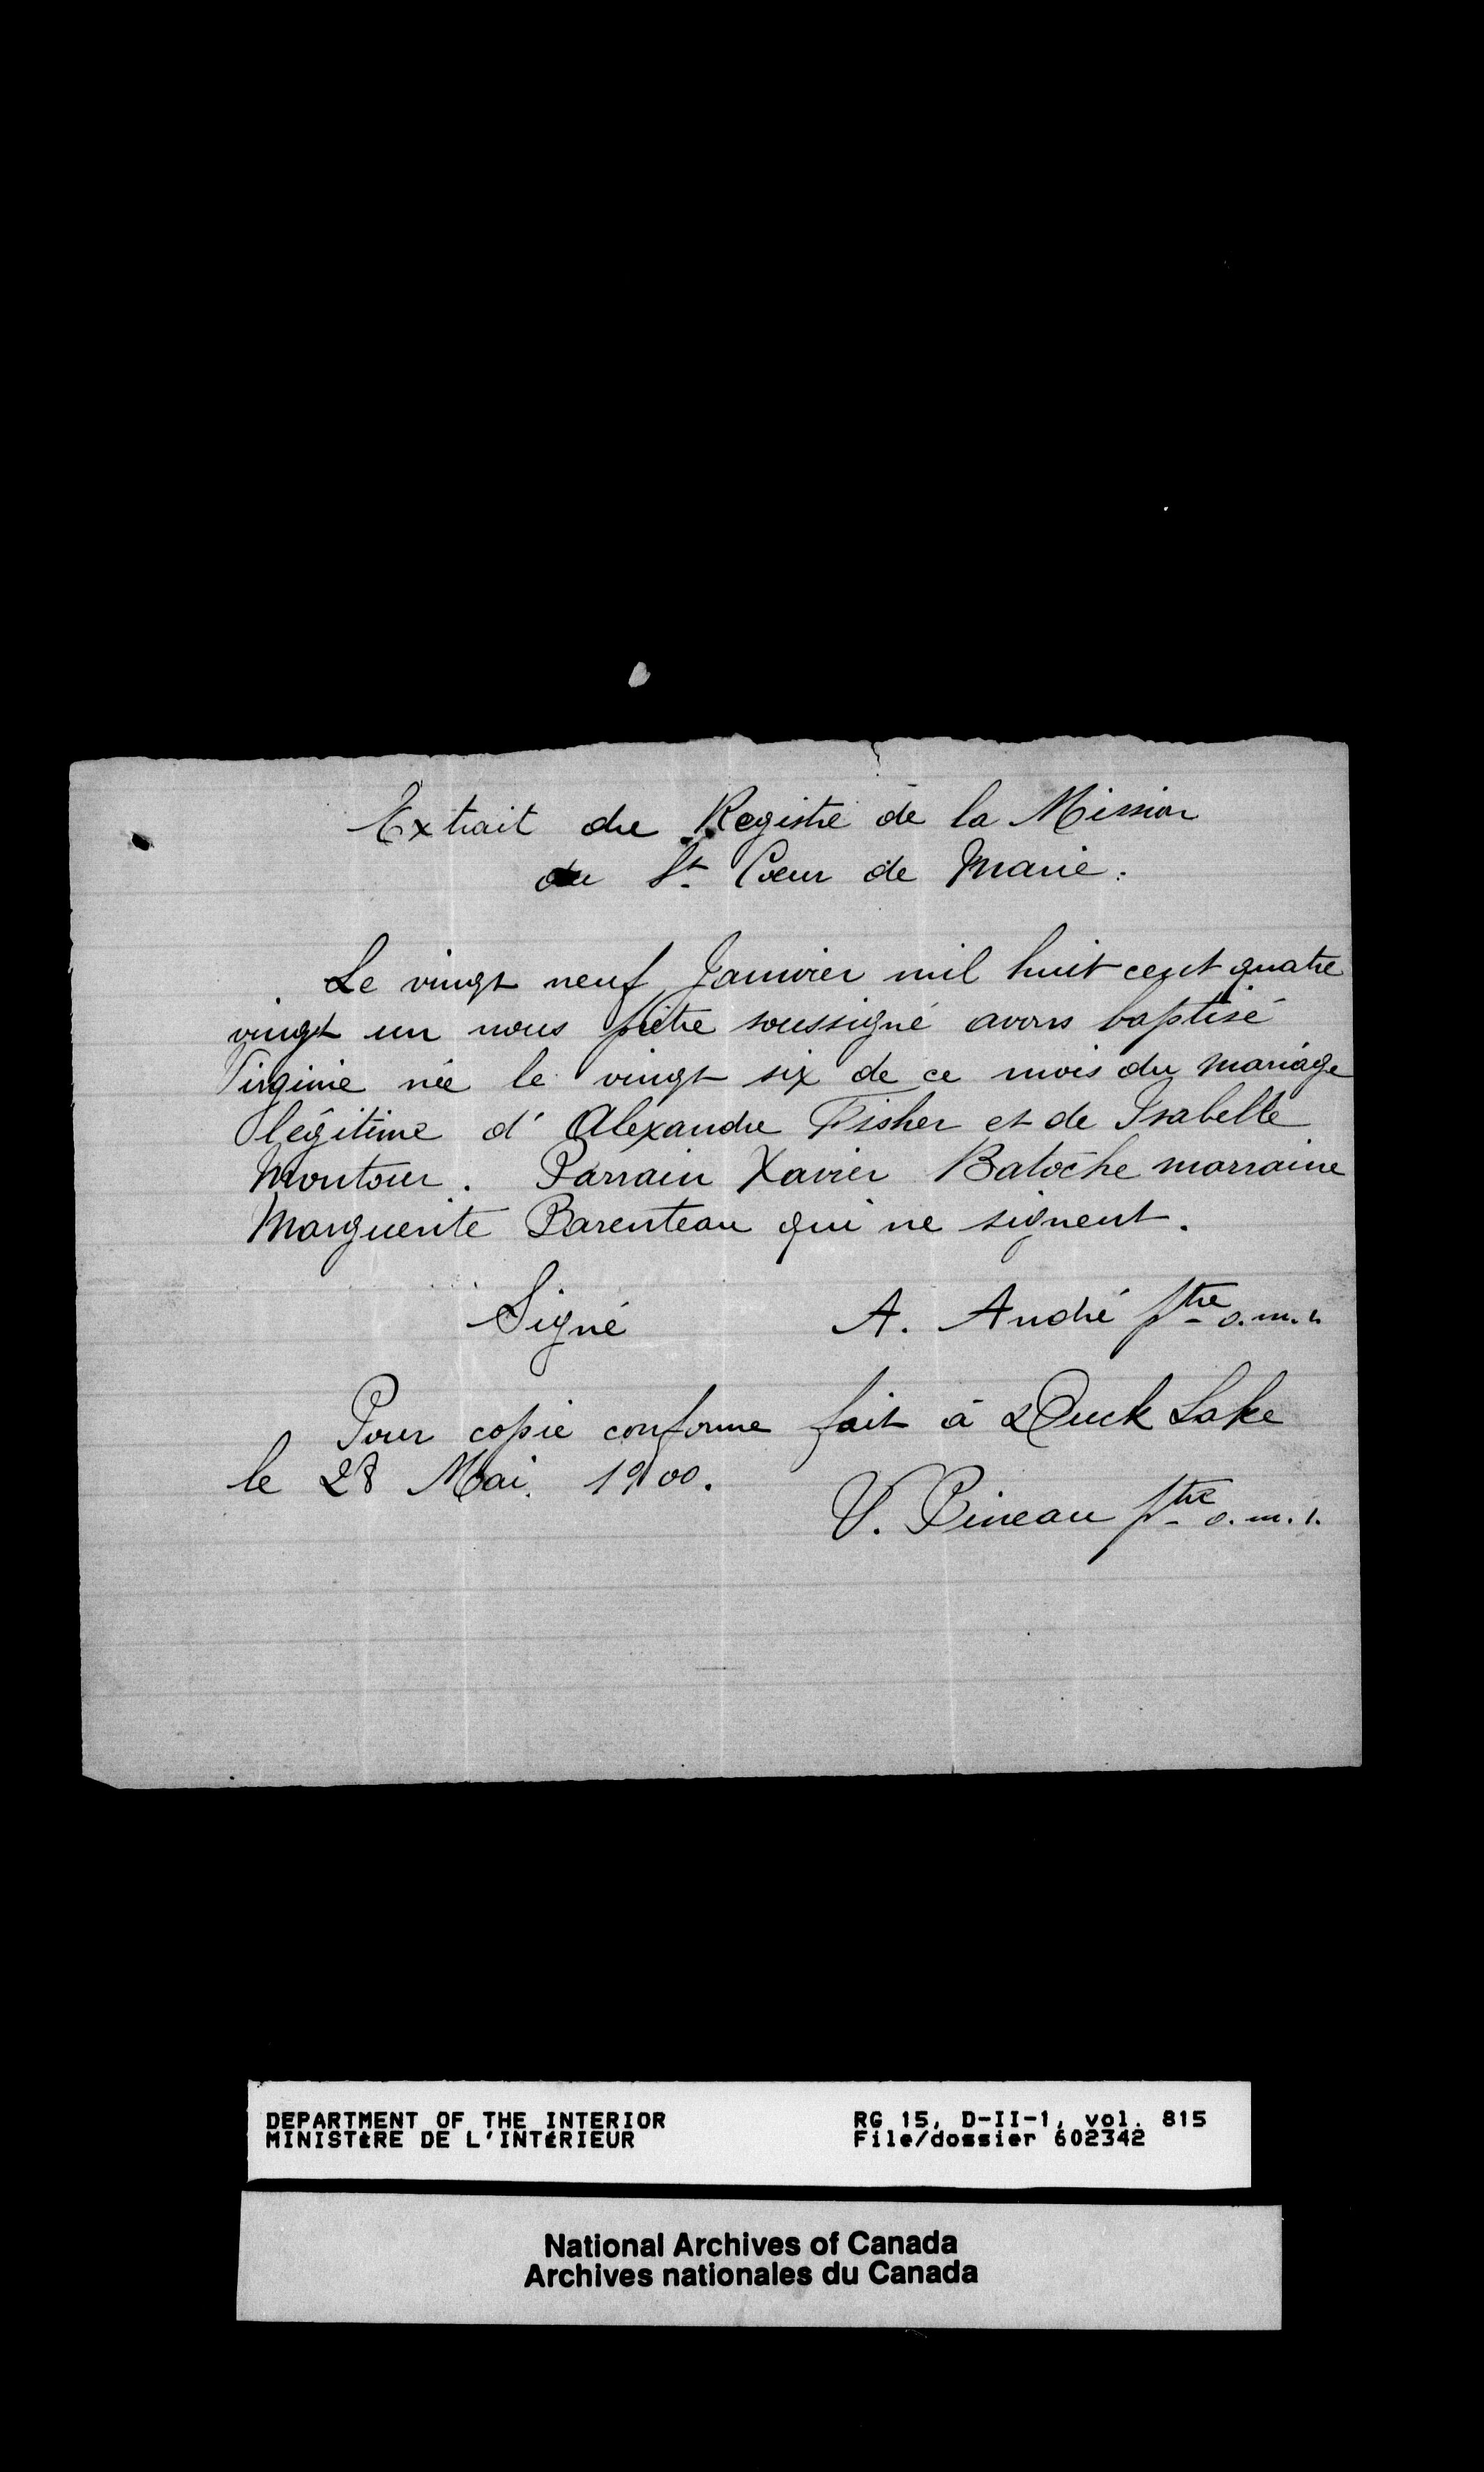 Extrait du Registre de la Mission
du St. Cœur de Marie.
Le vingt neuf Janvier mil huit cent quatre
vingt un nous prêtre soussigné avons baptisé
Virginie née le vingt six de ce mois du mariage
légitime d' Alexandre Fisher et de Isabelle
Montour. Parrain Xavier Batoche marraine
Marguerite Parenteau qui ne signent.
Signé A. André ptre o.m.i.
Pour copie conforme fait à Duck Lake
le 28 Mai. 1900.
V. Pineau ptre o.m.i.
DEPARTMENT OF THE INTERIOR RG 15, D-II-1, vol. 815
MINISTÈRE DE L'INTÉRIEUR File/dossier 602342
National Archives of Canada
Archives nationales du Canada